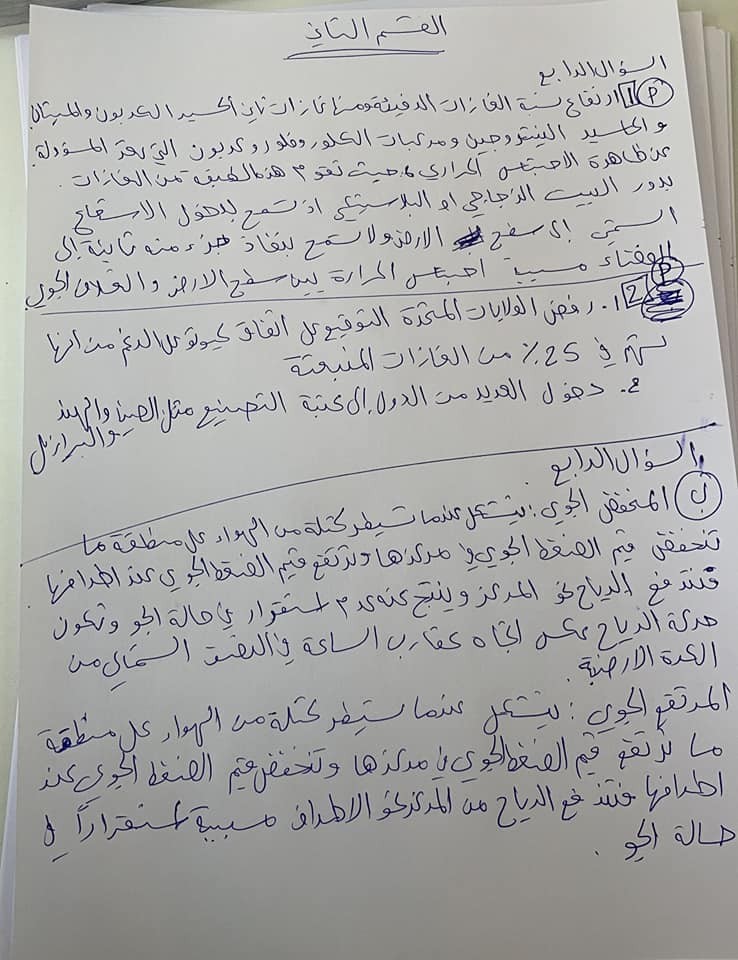 القسم الثاني
السؤال الرابع
أ 1 ارتفاع نسبة الغازات الدفيئة ومنها غازات ثاني أكسيد الكربون والميثان
و أكاسيد النيتروجين ومركبات الكلور وفلور وكربون التي تعد المسؤولة
عن ظاهرة الاحتباس الحراري، حيث تقوم هذه الطبقة من الغازات
بدور البيت الزجاجي او البلاستيكي اذ تسمح بدخول الاشعاع
الشمسي إلى سطح الارض ولا تسمح بنفاذ جزء منه ثانية إلى
الفضاء مسببة احتباس الحرارة بين سطح الارض والغلاف الجوي
أ 2 1. رفض الولايات المتحدة التوقيع على اتفاق كيوتو على الرغم من انها
تسهم في 25٪ من الغازات المنبعثة
2. دخول العديد من الدول إلى عتبة التصنيع مثل الصين والهند
والبرازيل
السؤال الرابع
ب المنخفض الجوي: يتشكل عندما تسيطر كتلة من الهواء على منطقة ما
تنخفض قيم الضغط الجوي في مركزها وترتفع قيم الضغط الجوي عند اطرافها
فتندفع الرياح نحو المركز وينتج عنه عدم استقرار في حالة الجو وتكون
حركة الرياح عكس اتجاه عقارب الساعة في النصف الشمالي من
الكرة الارضية.
المرتفع الجوي: يتشكل عندما تسيطر كتلة من الهواء على منطقة
ما ترتفع قيم الضغط الجوي في مركزها وتنخفض قيم الضغط الجوي عند
اطرافها فتندفع الرياح من المركز نحو الاطراف مسببة استقراراً في
حالة الجو.